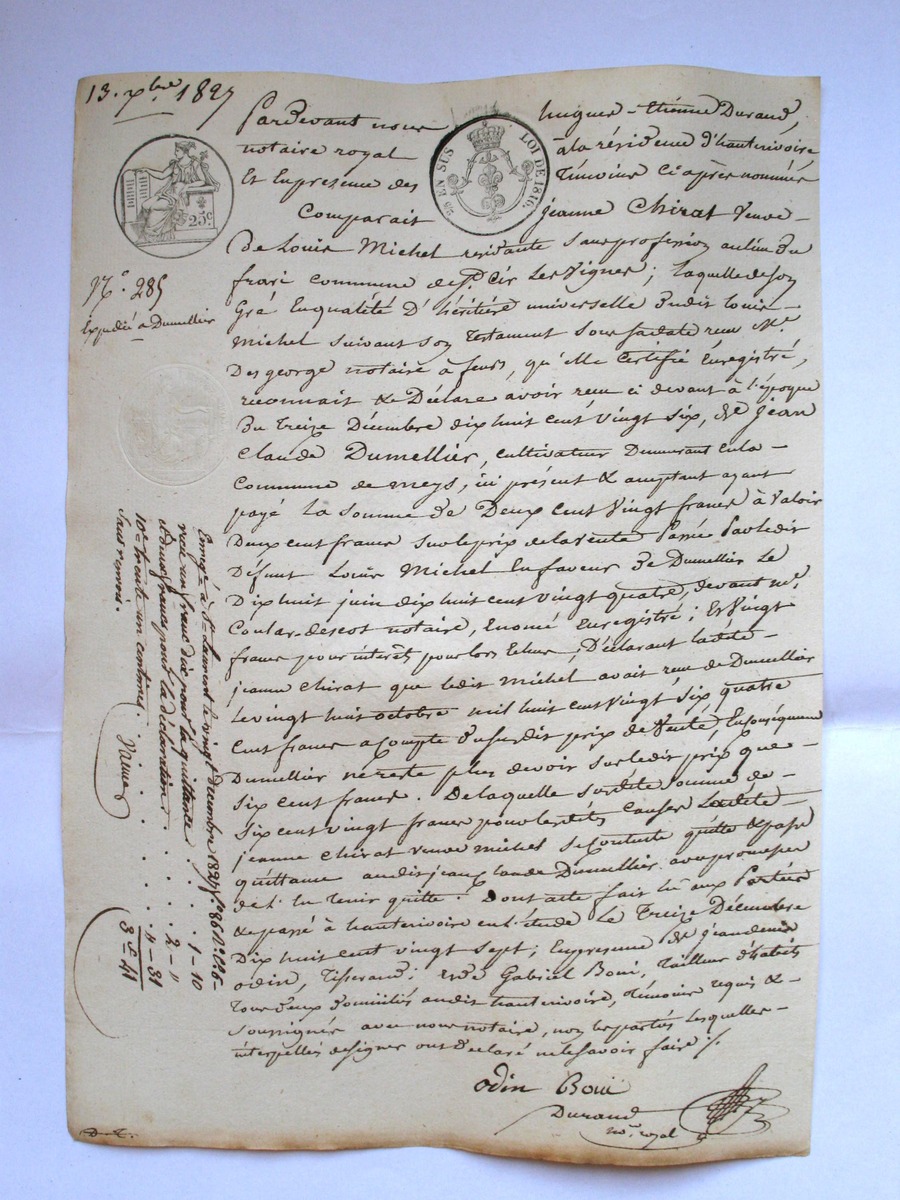 13. xbre 1827
Pardevant nous hugues-étienne Durand,
notaire royal à la résidence d'hauterivoire
Et En presence des témoins Ci après nommés
Comparait jeanne Chirat veuve-
De Louis Michel residante Sans profession au lieu Du
frari commune de St. Cir Les Vignes; laquelle de Son
Gré En qualité D'héritière universelle Dudit Louis-
Michel Suivant Son Testament Sous Sa date reçu Me.
Des george notaire à feurs, qu'elle Certifie Enregistré,
reconnait & Déclare avoir reçu ci devant à l'époque
Du treize Décembre dix huit Cent Vingt Six, de jean
Claude Dumellier, cultivateur Demeurant En la-
Commune de meys, ici présent & acceptant ayant
payé la Somme de Deux Cent Vingt francs à Valoir
Deux cent francs Sur le prix de la Vente Passée Par ledit
Défunt Louis Michel En faveur De Dumellier Le
Dix huit juin dix huit Cent vingt quatre, devant Me.
notaire, Enregistré; Et Vingt
francs pour interêts pour lors Echus; Déclarant ladite-
jeanne Chirat que ledit Michel avait reçu de Dumellier
le vingt huit octobre mil huit Cent Vingt Six quatre
Cent francs a Compte Du Susdit prix de Vente, En Conséquence
Dumellier ne reste plus devoir Sur ledit prix que-
Six Cent francs. De laquelle Susdite Somme de-
Six Cent vingt francs pour lesdites Causes Ladite-
jeanne Chirat veuve michel Se Contente quitte & passe
quittance audit jean Claude Dumellier avec promesse
de l'en tenir quitte. Dont acte fait lu aux Parties
& passé à hauterivoire en l'étude Le Treize Décembre
Dix huit Cent vingt Sept; En presence De jean denis
odin, Tisserand; & de Gabriel Boui, tailleur d'habits
tous deux domiciliés audit hauterivoire, témoins requis &-
Soussignés avec nous notaire, non les parties lesquelles-
interpellés de signer ont Déclaré ne le Savoir faire ./.
odin Boui
Durand
nre. royal
25c.
25 EN SUS LOI DE 1816.
No. 285
Expédié à Dumellier
Enregé. à St. Laurent le vingt décembre 1827 fo. 86 Vo. C. 6-
reçu un franc dix pour la quittance . . . . 1-10
et deux francs pour la déclaration . . . . 2-"
10e. trente un centimes. . . . . "-31
Sans renvoi. 3f. 41
D-L.